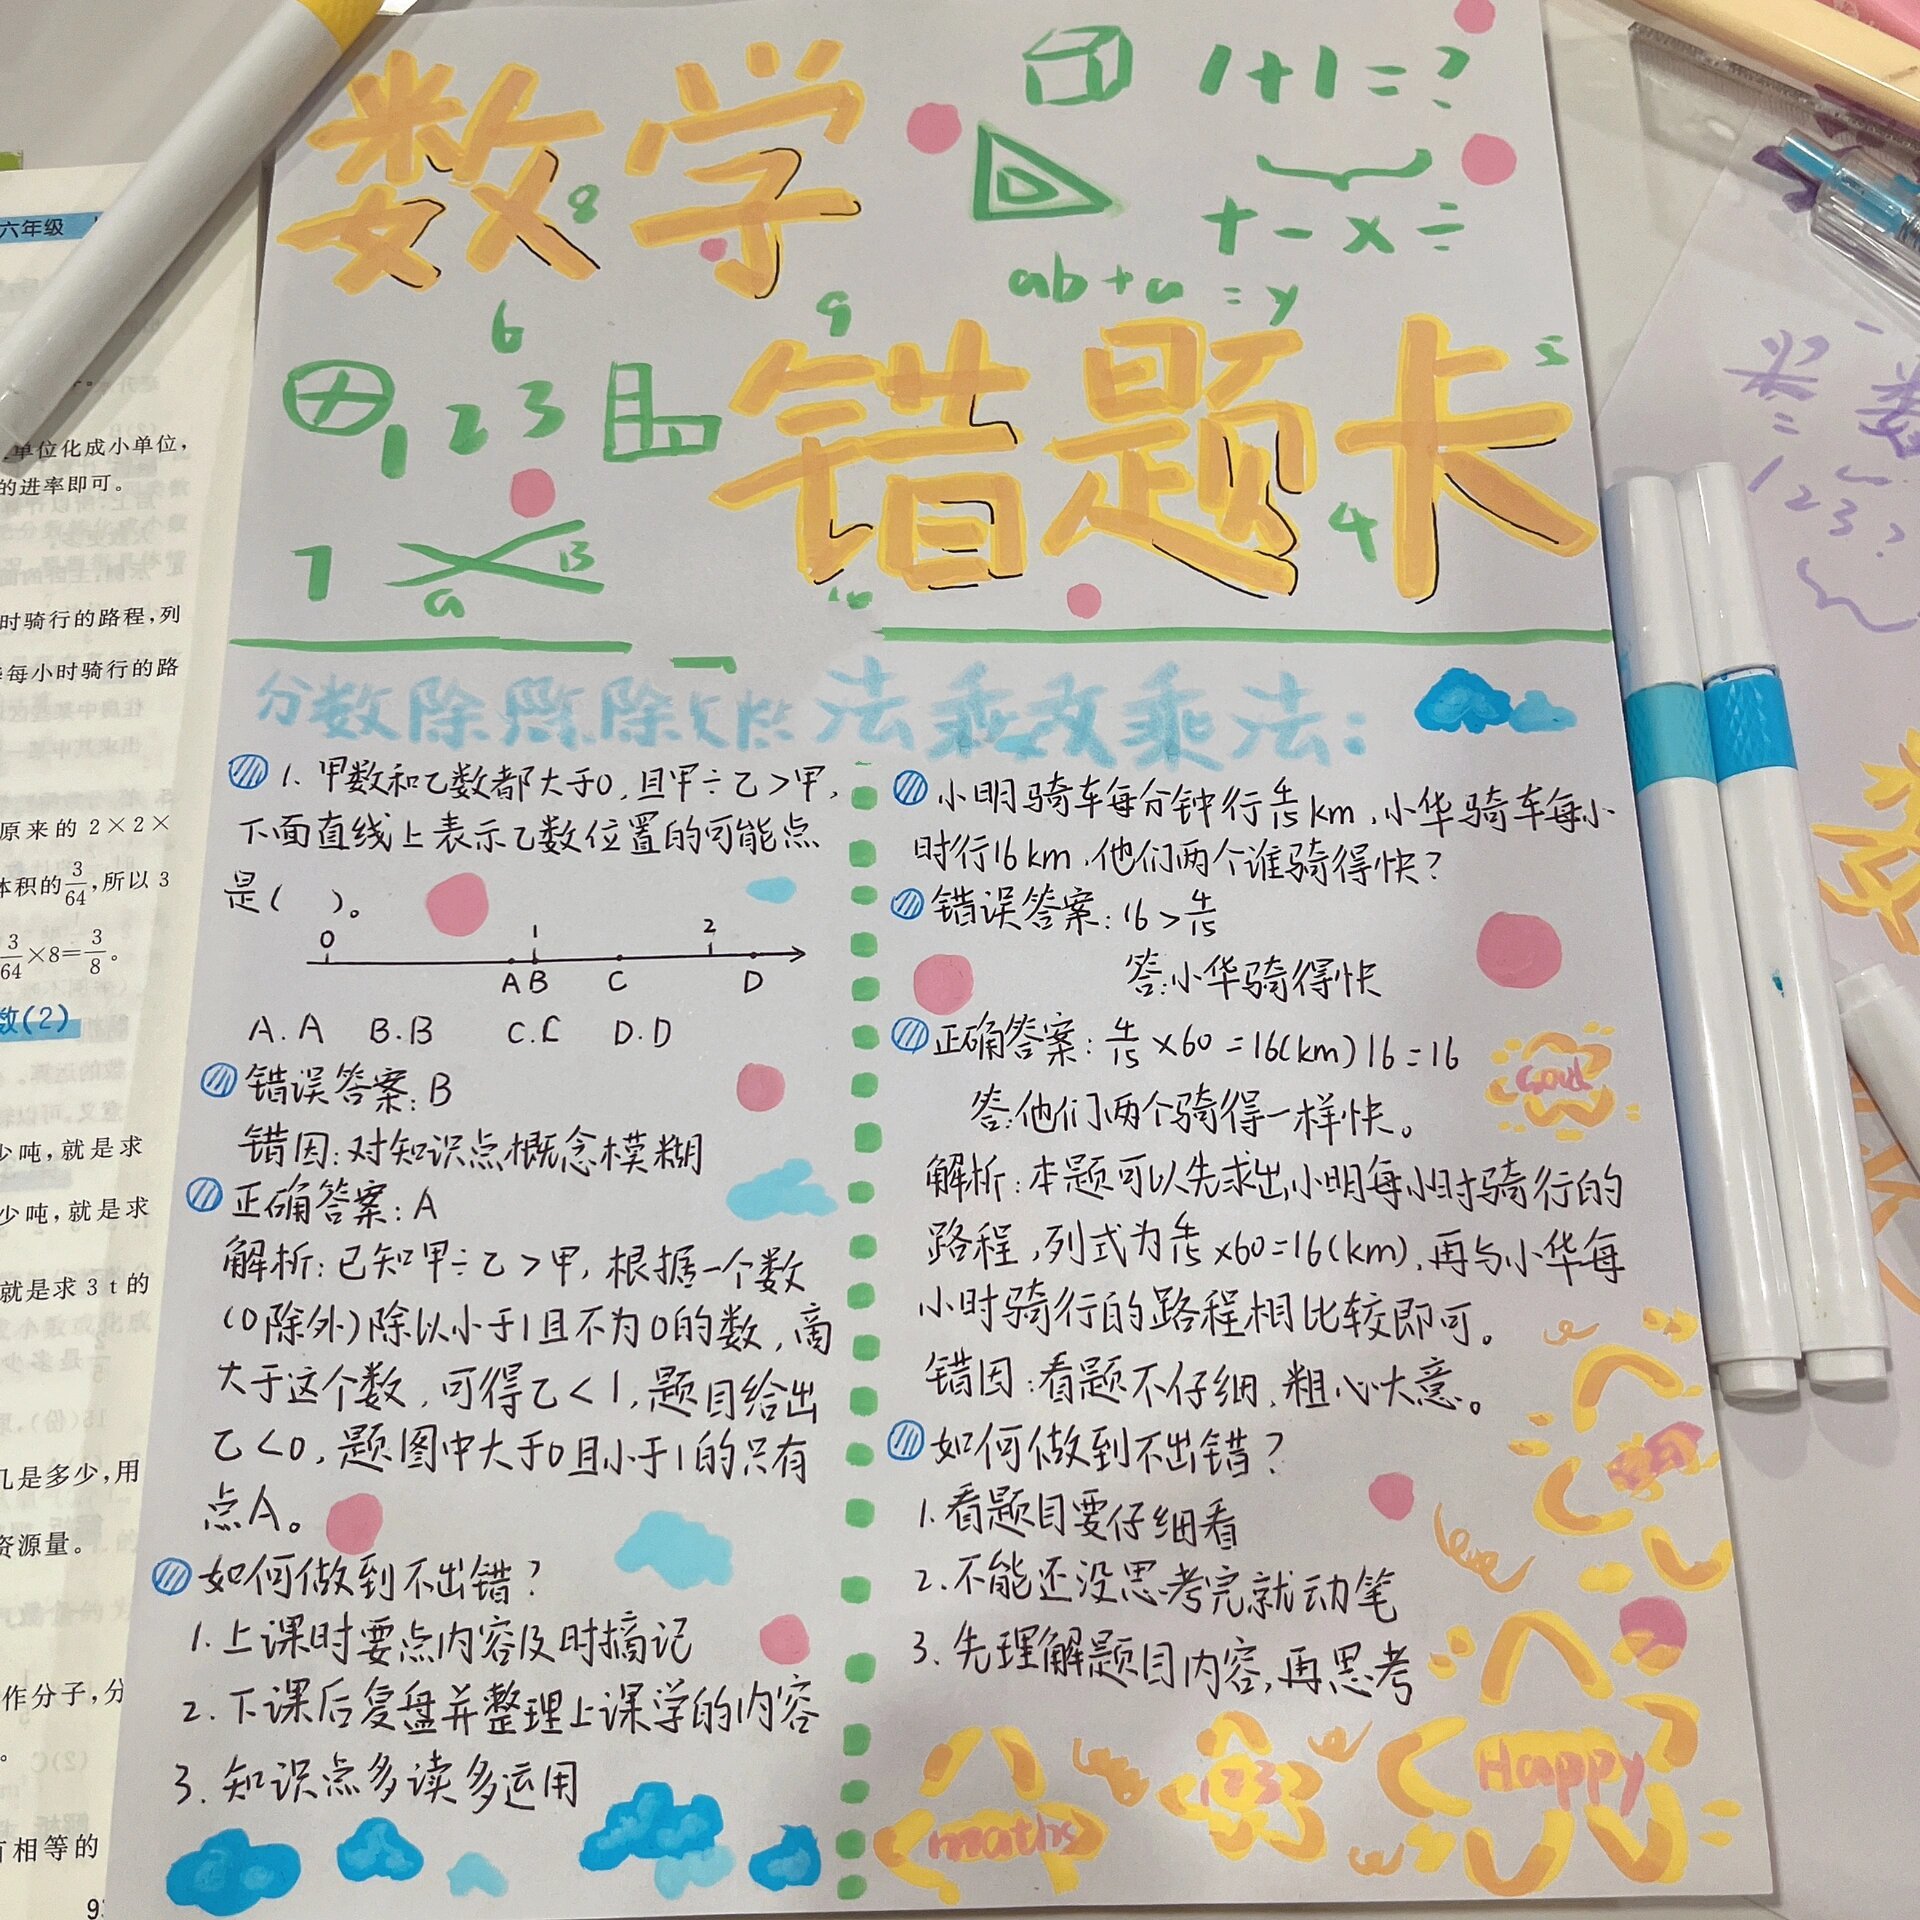 数学
1+1=?
+ - × ÷
ab+a=y
8
6
9
错题卡
5
1 2 3
4
7
B
a
10
分数除
除
法乘
乘法:
1. 甲数和乙数都大于0,且甲÷乙>甲,
下面直线上表示乙数位置的可能点
是(  )。
0 1 2
A B C D
A.A B.B C.C D.D
错误答案:B
错因:对知识点概念模糊
正确答案:A
解析:已知甲÷乙>甲,根据一个数
(0除外)除以小于1且不为0的数,商
大于这个数,可得乙<1,题目给出
乙<0,题图中大于0且小于1的只有
点A。
如何做到不出错?
1.上课时要点内容及时摘记
2.下课后复盘并整理上课学的内容
3.知识点多读多运用
小明骑车每分钟行4/15km,小华骑车每小
时行16km,他们两个谁骑得快?
错误答案:16>4/15
答:小华骑得快
正确答案:4/15×60=16(km) 16=16
答:他们两个骑得一样快。
解析:本题可以先求出小明每小时骑行的
路程,列式为4/15×60=16(km),再与小华每
小时骑行的路程相比较即可。
错因:看题不仔细,粗心大意。
如何做到不出错?
1.看题目要仔细看
2.不能还没思考完就动笔
3.先理解题目内容,再思考
maths
123
Happy
六年级
单位化成小单位,
的进率即可。
时骑行的路程,列
每小时骑行的路
原来的 2×2×
体积的3/64,所以3
3/64×8=3/8。
数(2)
少吨,就是求
少吨,就是求
就是求3 t的
几是多少,用
资源量。
作分子,分
有相等的
1 2 3 ?